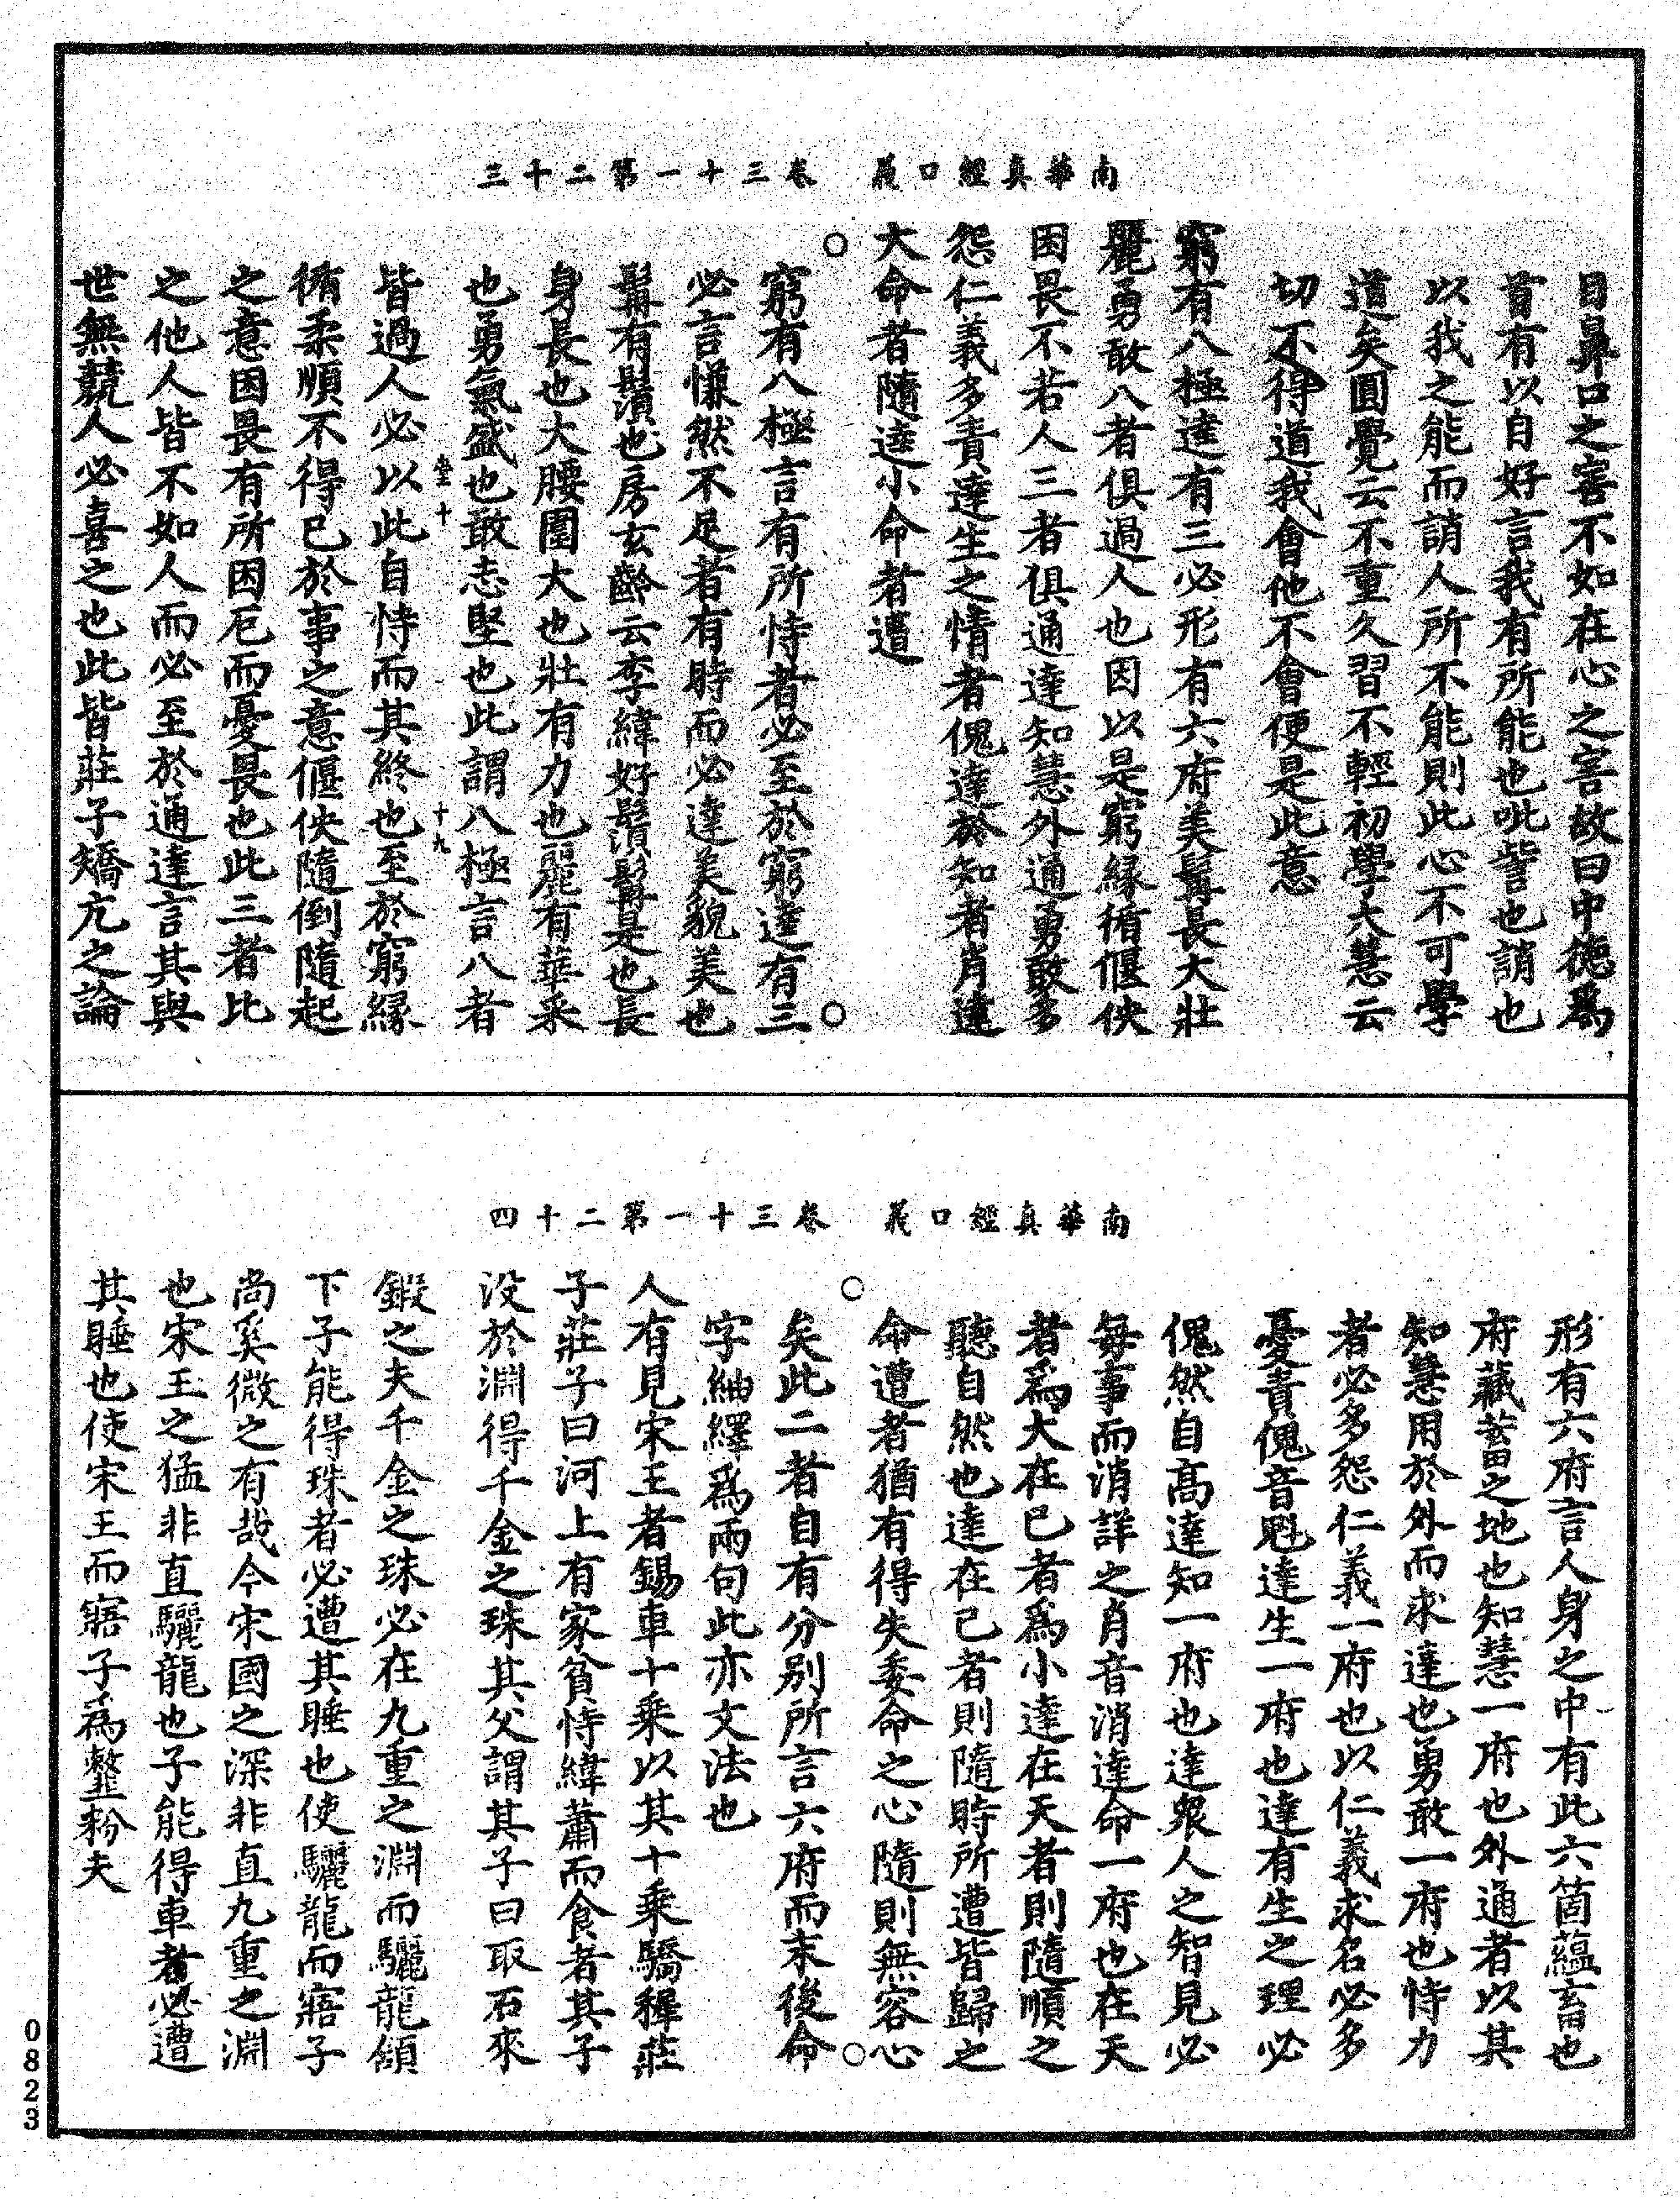 南華真經口義　卷三十一第二十三
目鼻口之害不如在心之害故曰中德爲
首有以自好言我有所能也吡訾也誚也
以我之能而誚人所不能則此心不可學
道矣圓覺云不重久習不輕初學大慧云
切不得道我會他不會便是此意
窮有八極達有三必形有六府美髯長大壯
麗勇敢八者俱過人也因以是窮緣循偃佒
困畏不若人三者俱通達知慧外通勇敢多
怨仁義多責達生之情者傀達於知者肖達
大命者隨達小命者遭
○
窮有八極言有所恃者必至於窮達有三
○
必言慊然不足者有時而必達美貌美也
髯有鬚也房玄齡云李緯好鬚髯是也長
身長也大腰圍大也壯有力也麗有華采
也勇氣盛也敢志堅也此謂八極言八者
㘴十　十九
皆過人必以此自恃而其終也至於窮緣
循柔順不得已於事之意偃佒隨倒隨起
之意困畏有所困厄而憂畏也此三者比
之他人皆不如人而必至於通達言其與
世無競人必喜之也此皆莊子矯亢之論
南華真經口義　卷三十一第二十四
形有六府言人身之中有此六箇蘊畜也
府藏蓄之地也知慧一府也外通者以其
知慧用於外而求達也勇敢一府也恃力
者必多怨仁義一府也以仁義求名必多
憂責傀音魁達生一府也達有生之理必
傀然自高達知一府也達衆人之智見必
每事而消詳之肖音消達命一府也在天
者爲大在已者爲小達在天者則隨順之
聽自然也達在己者則隨時所遭皆歸之
命遭者猶有得失委命之心隨則無容心
○
○
矣此二者自有分别所言六府而末後命
字紬繹爲兩句此亦文法也
人有見宋王者錫車十乘以其十乘驕穉莊
子莊子曰河上有家貧恃緯蕭而食者其子
没於淵得千金之珠其父謂其子曰取石來
鍛之夫千金之珠必在九重之淵而驪龍頷
下子能得珠者必遭其睡也使驪龍而寤子
尚奚微之有哉今宋國之深非直九重之淵
也宋王之猛非直驪龍也子能得車者必遭
其睡也使宋王而寤子爲韲粉夫
0823